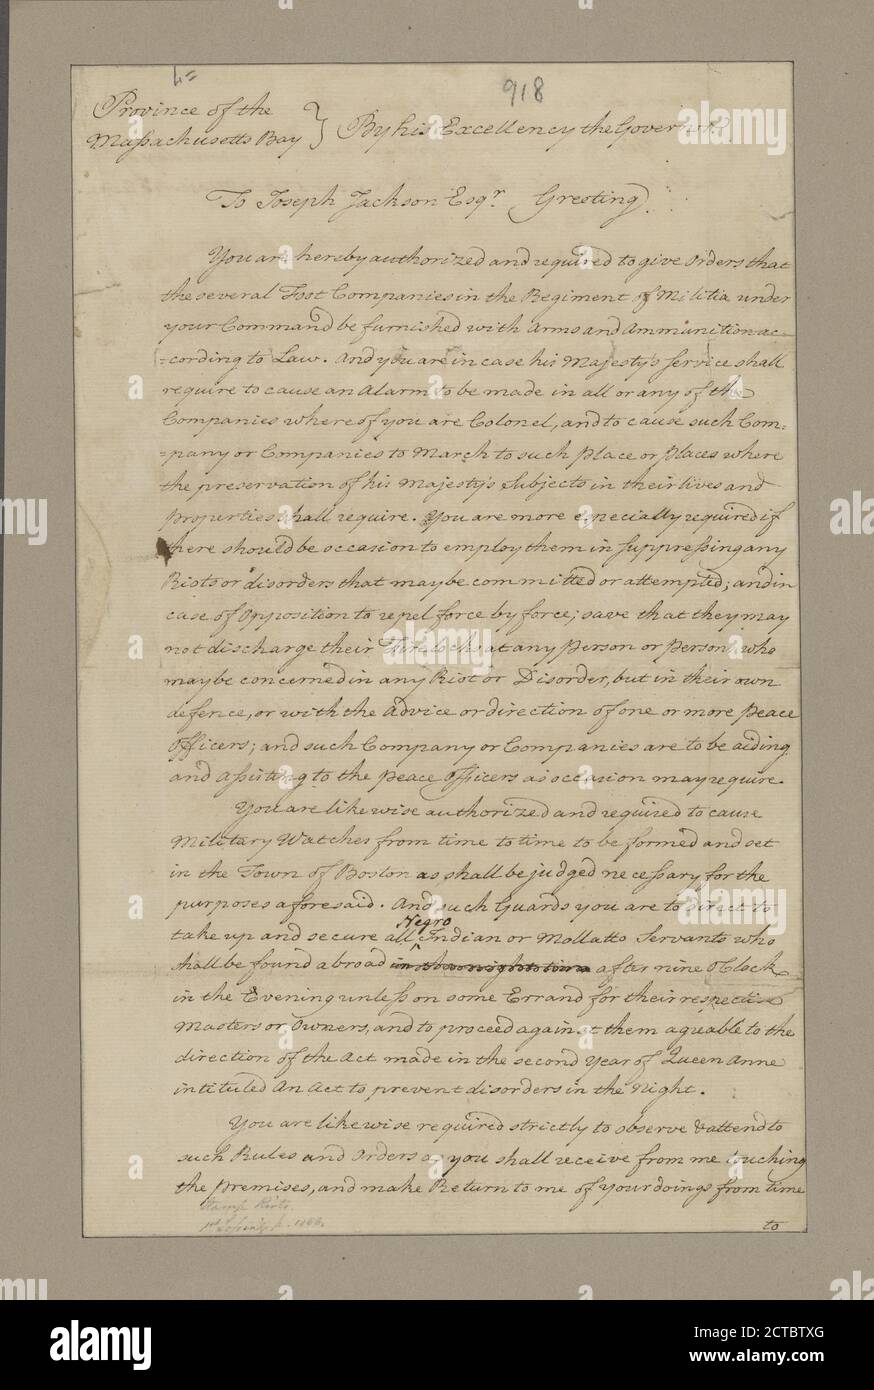 4=
918
Province of the
Massachusetts Bay } By his Excellency the Governor.
To Joseph Jackson Esqr. Greeting.
You are hereby authorized and required to give Orders that
the several Foot Companies in the Regiment of Militia under
your Command be furnished with Arms and Ammunition ac-
=cording to Law. And you are in case his Majesty's Service shall
require to cause an Alarm to be made in all or any of the
Companies whereof you are Colonel, and to cause such Com=
=pany or Companies to March to such Place or Places where
the preservation of his Majesty's Subjects in their lives and
Properties shall require. You are more especially required if
there should be occasion to employ them in suppressing any
Riots or disorders that may be committed or attempted; and in
case of opposition to repel force by force; save that they may
not discharge their Firelocks at any Person or Persons, who
may be concerned in any Riot or Disorder, but in their own
defence, or with the Advice or direction of one or more Peace
Officers; and such Company or Companies are to be aiding
and Assisting to the Peace Officers as occasion may require.
You are likewise authorized and required to cause
Military Watches from time to time to be formed and set
in the Town of Boston as shall be judged necessary for the
purposes aforesaid. And such Guards you are to direct to
Negro
take up and secure all ^ Indian or Mollatto Servants who
shall be found abroad after nine o'Clock
in the Evening unless on some Errand for their respective
Masters or Owners, and to proceed against them agreable to the
direction of the Act made in the second Year of Queen Anne
intituled An Act to prevent disorders in the Night.
You are likewise required strictly to observe & attend to
such Rules and Orders as you shall receive from me touching
the premises, and make Return to me of your doings from time
to
Stamp Riots.
alamy
Image ID: 2CTBTXG
www.alamy.com